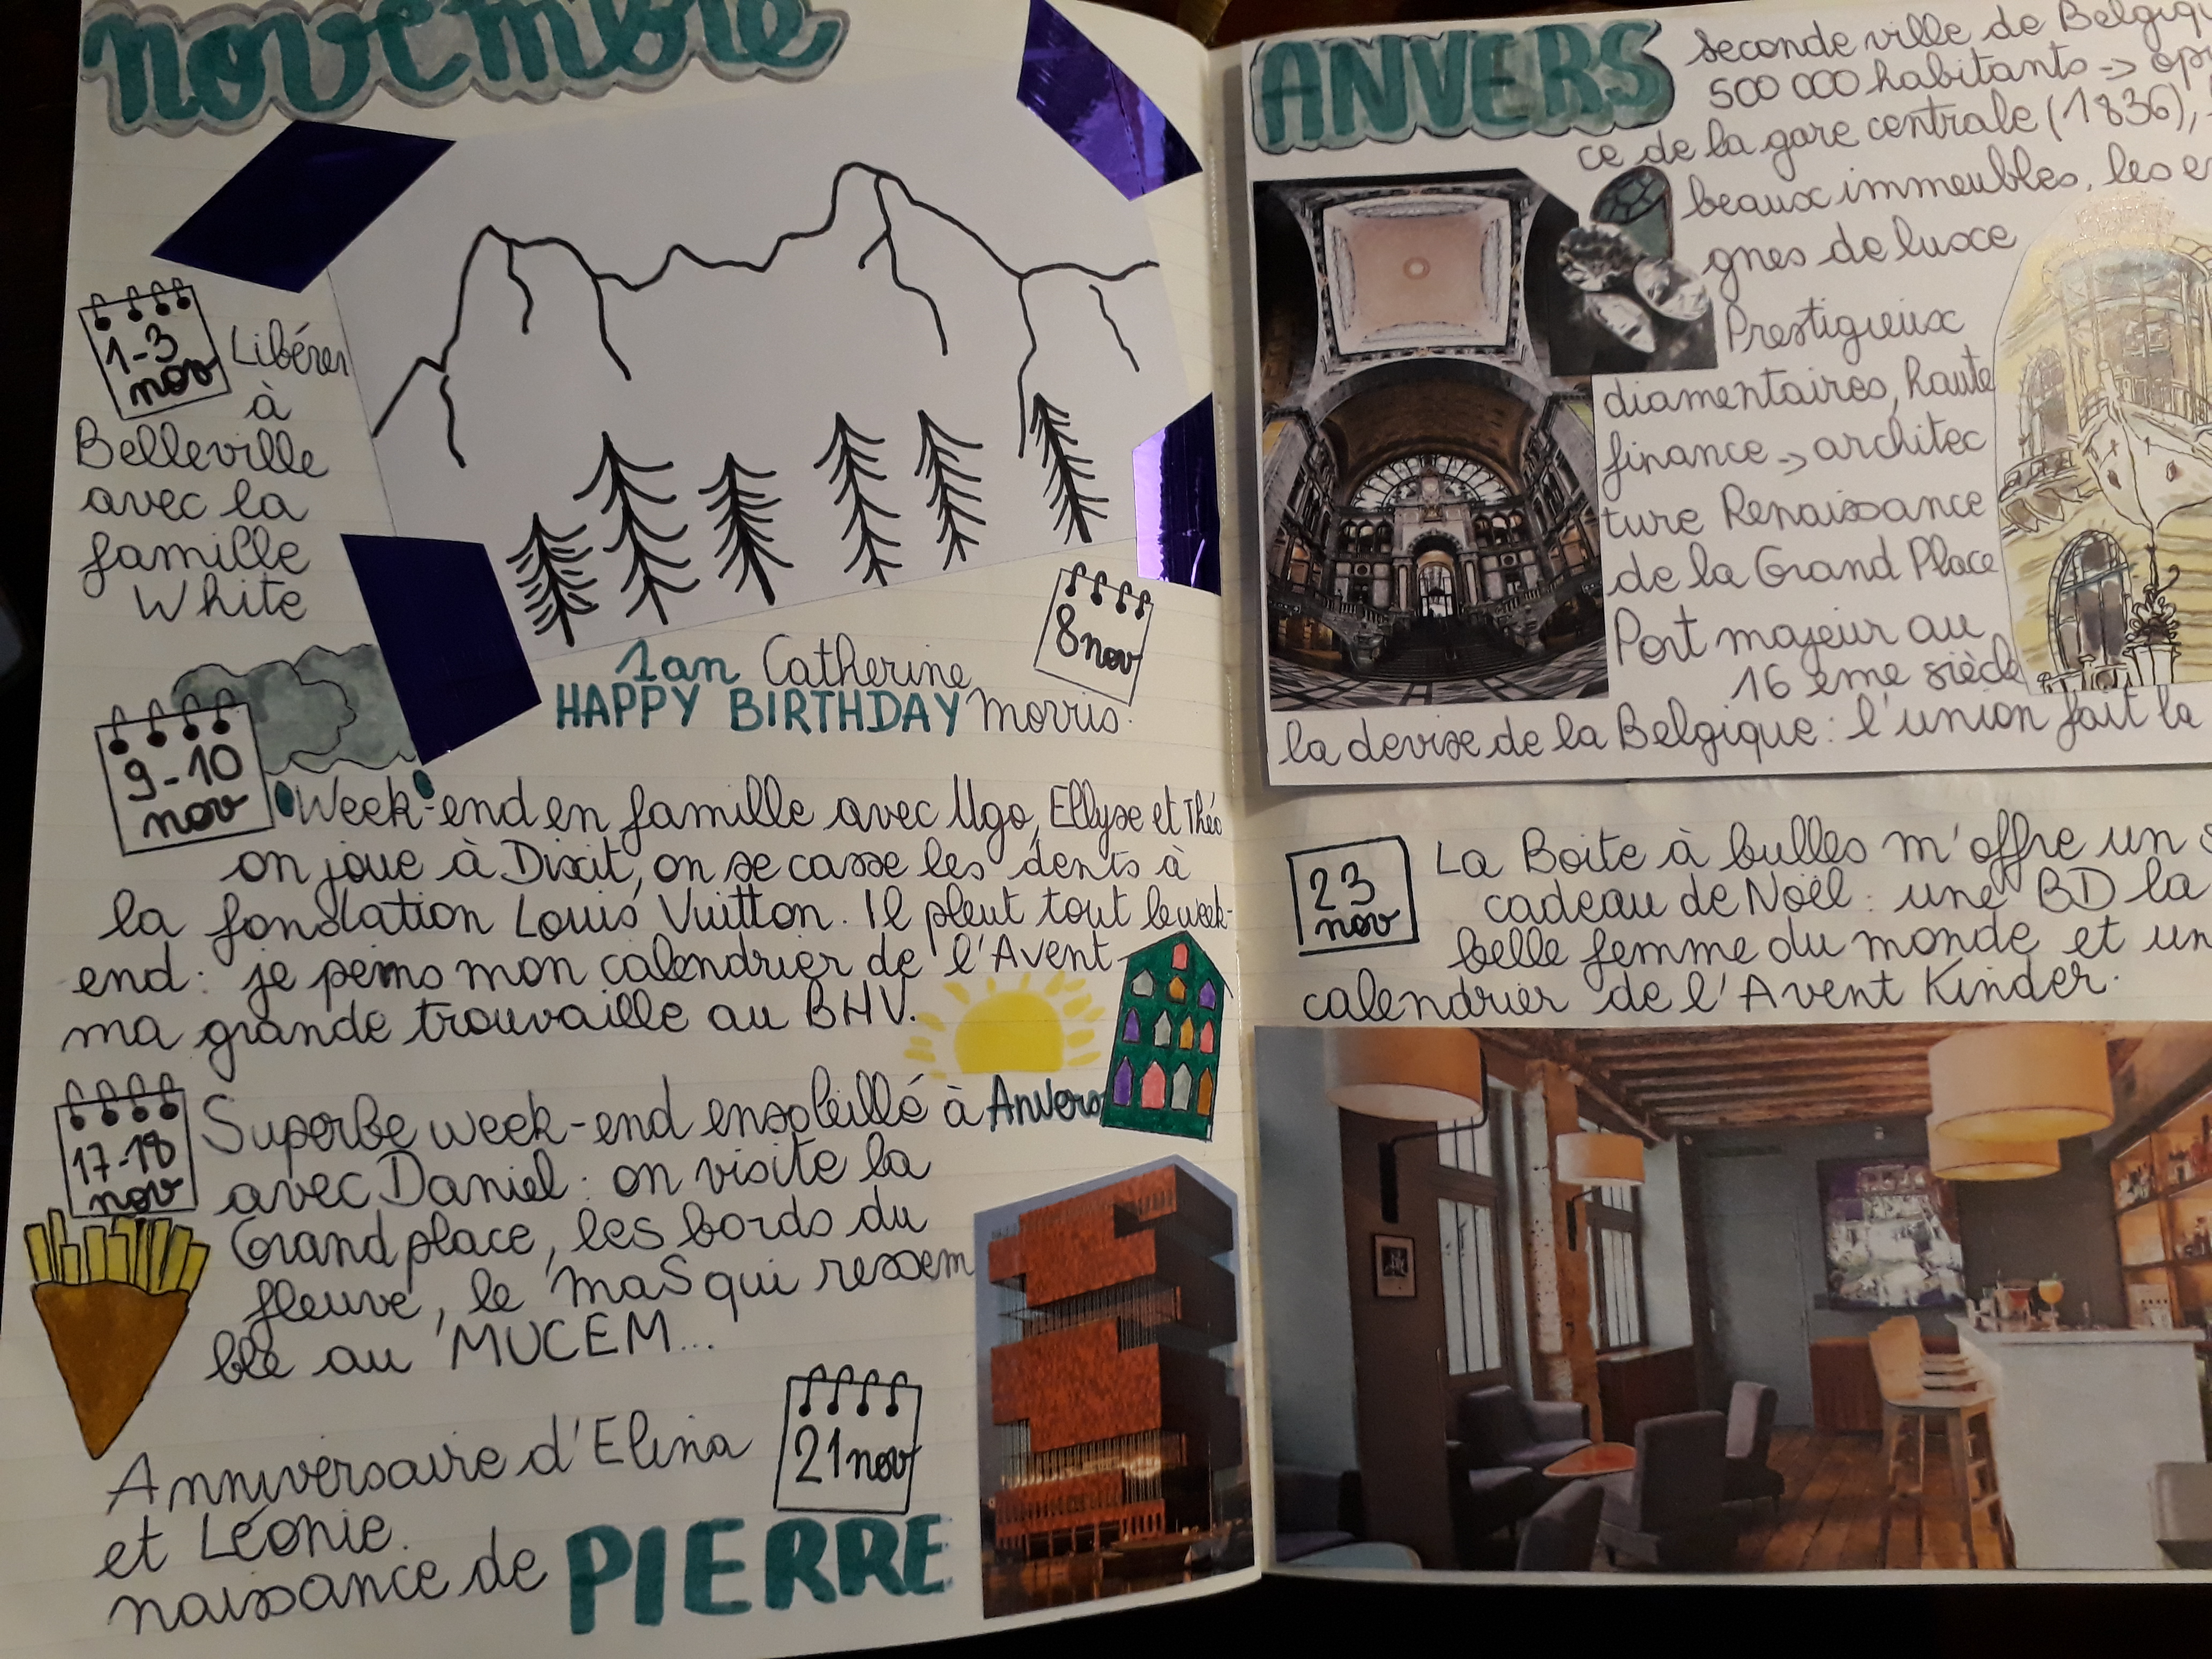 novembre
1-3
nov
Libérer
à
Belleville
avec la
famille
White
8 nov
1 an Catherine
HAPPY BIRTHDAY Morris.
9-10
nov
Week-end en famille avec Ugo, Ellyse et Théo
on joue à Dixit, on se casse les dents à
la fondation Louis Vuitton. Il pleut tout le week-
end: je peins mon calendrier de l'Avent
ma grande trouvaille au BHV.
17-18
nov
Superbe week-end ensoleillé à Anvers
avec Daniel: on visite la
Grand place, les bords du
fleuve, le MaS qui ressem
ble au MUCEM...
21 nov
Anniversaire d'Elina
et Léonie.
naissance de PIERRE
ANVERS
seconde ville de Belgiqu
500 000 habitants -> op
ce de la gare centrale (1836),
beaux immeubles, les en
gnes de luxe
Prestigieux
diamentaires, haute
finance -> architec
ture Renaissance
de la Grand Place
Port majeur au
16 ème siècle
la devise de la Belgique: l'union fait la
23
nov
La Boite à bulles m'offre un s
cadeau de Noël: une BD la
belle femme du monde et un
calendrier de l'Avent Kinder.